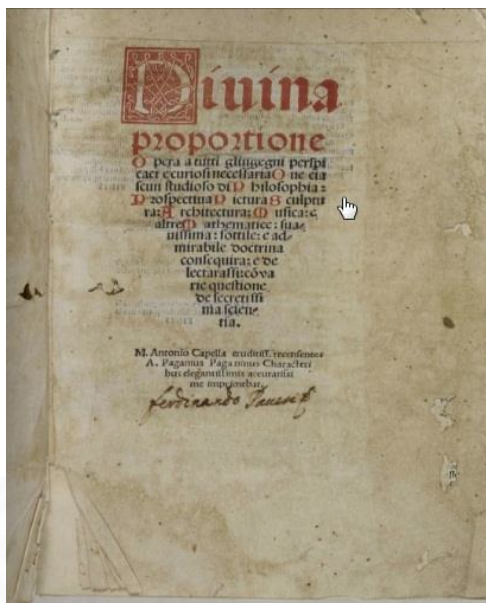 Diuina
proportione
Opera a tutti glingegni perspi
caci e curiosi necessaria Oue cia
scun studioso di Philosophia:
Prospectiua Pictura Sculptu
ra: Architectura: Musica: e
altre Mathematice: sua
uissima: sottile: e ad
mirabile doctrina
consequira: e de
lectarassi: cõ va
rie questione
de secretissi
ma scien
tia.
M. Antonio Capella eruditiss. recensente:
A. Paganius Paganinus Characteri
bus elegantissimis accuratissi
me imprimebat.
ferdinando